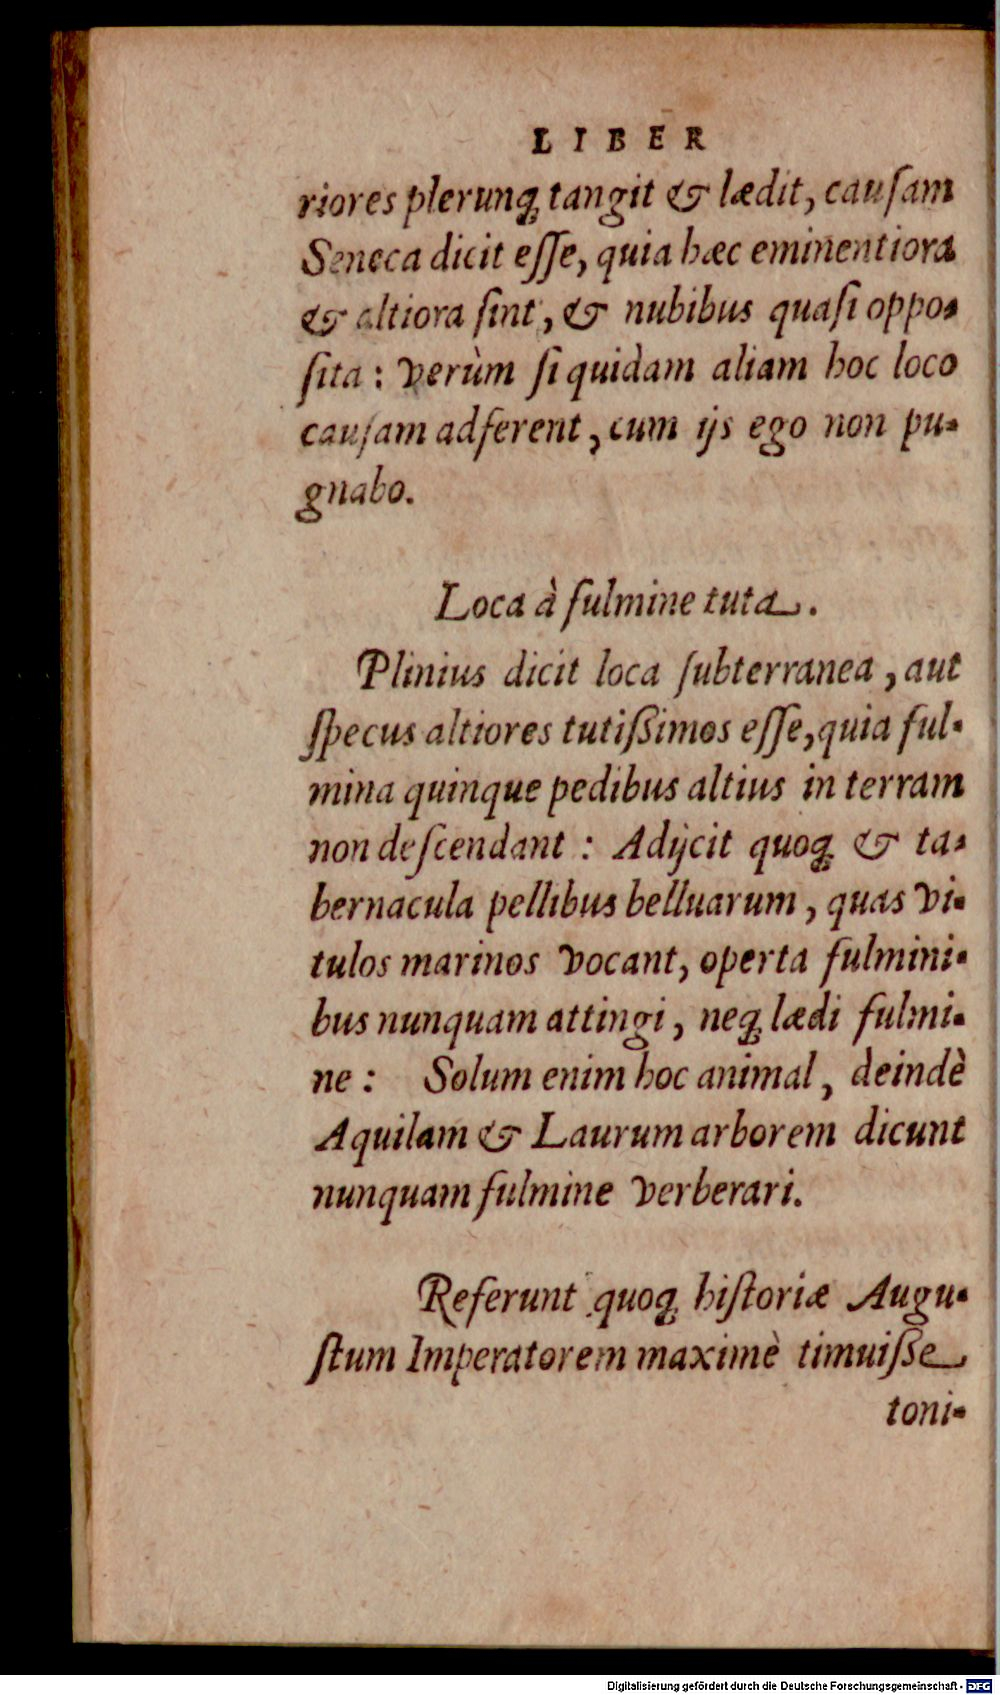 LIBER
riores plerunq; tangit & lædit, cauſam
Seneca dicit eſſe, quia hæc eminentiora
& altiora ſint, & nubibus quaſi oppo-
ſita: verùm ſi quidam aliam hoc loco
cauſam adferent, cum ijs ego non pu-
gnabo.
Loca à fulmine tuta.
Plinius dicit loca ſubterranea, aut
ſpecus altiores tutißimos eſſe, quia ful-
mina quinque pedibus altius in terram
non deſcendant: Adijcit quoq; & ta-
bernacula pellibus belluarum, quas vi-
tulos marinos vocant, operta fulmini-
bus nunquam attingi, neq; lædi fulmi-
ne: Solum enim hoc animal, deindè
Aquilam & Laurum arborem dicunt
nunquam fulmine verberari.
Referunt quoq; hiſtoriæ Augu-
ſtum Imperatorem maximè timuiße
toni-
Digitalisierung gefördert durch die Deutsche Forschungsgemeinschaft - DFG